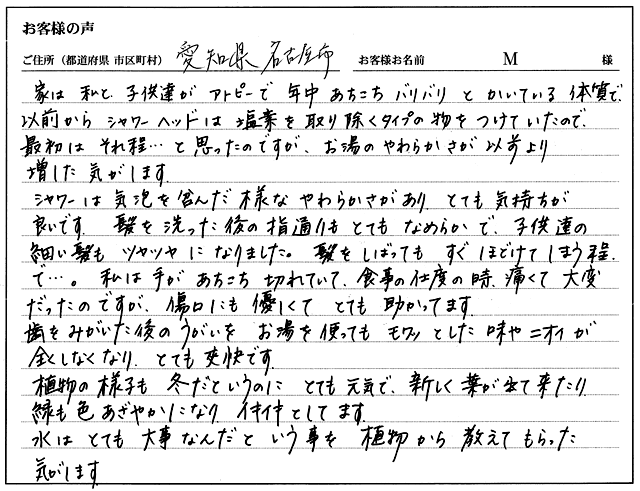 お客様の声
ご住所（都道府県 市区町村） 愛知県 名古屋市 お客様お名前 M 様
家は 私と 子供達が アトピーで 年中 あちこち バリバリ と かいている 体質で、
以前から シャワーヘッドは 塩素を 取り除くタイプの 物を つけていたので、
最初は それ程… と 思ったのですが、お湯の やわらかさが 以前より
増した 気がします。
シャワーは 気泡を 含んだ 様な やわらかさがあり、とても 気持ちが
良いです。 髪を 洗った 後の 指通りも とても なめらかで、子供達の
細い髪も ツヤツヤ に なりました。髪を しばっても すぐ ほどけて しまう 程
で…。 私は 手が あちこち 切れていて、食事の 仕度の 時、痛くて 大変
だったのですが、傷口にも 優しくて とても 助かってます。
歯を みがいた 後の うがいを お湯を 使っても モワッ とした 味や ニオイが
全くしなくなり、とても 爽快です。
植物の 様子も 冬だというのに とても 元気で、新しく 葉が 出て 来たり、
緑も 色 あざやかになり イキイキ としてます。
水は とても 大事なんだと いう 事を 植物から 教えて もらった
気がします